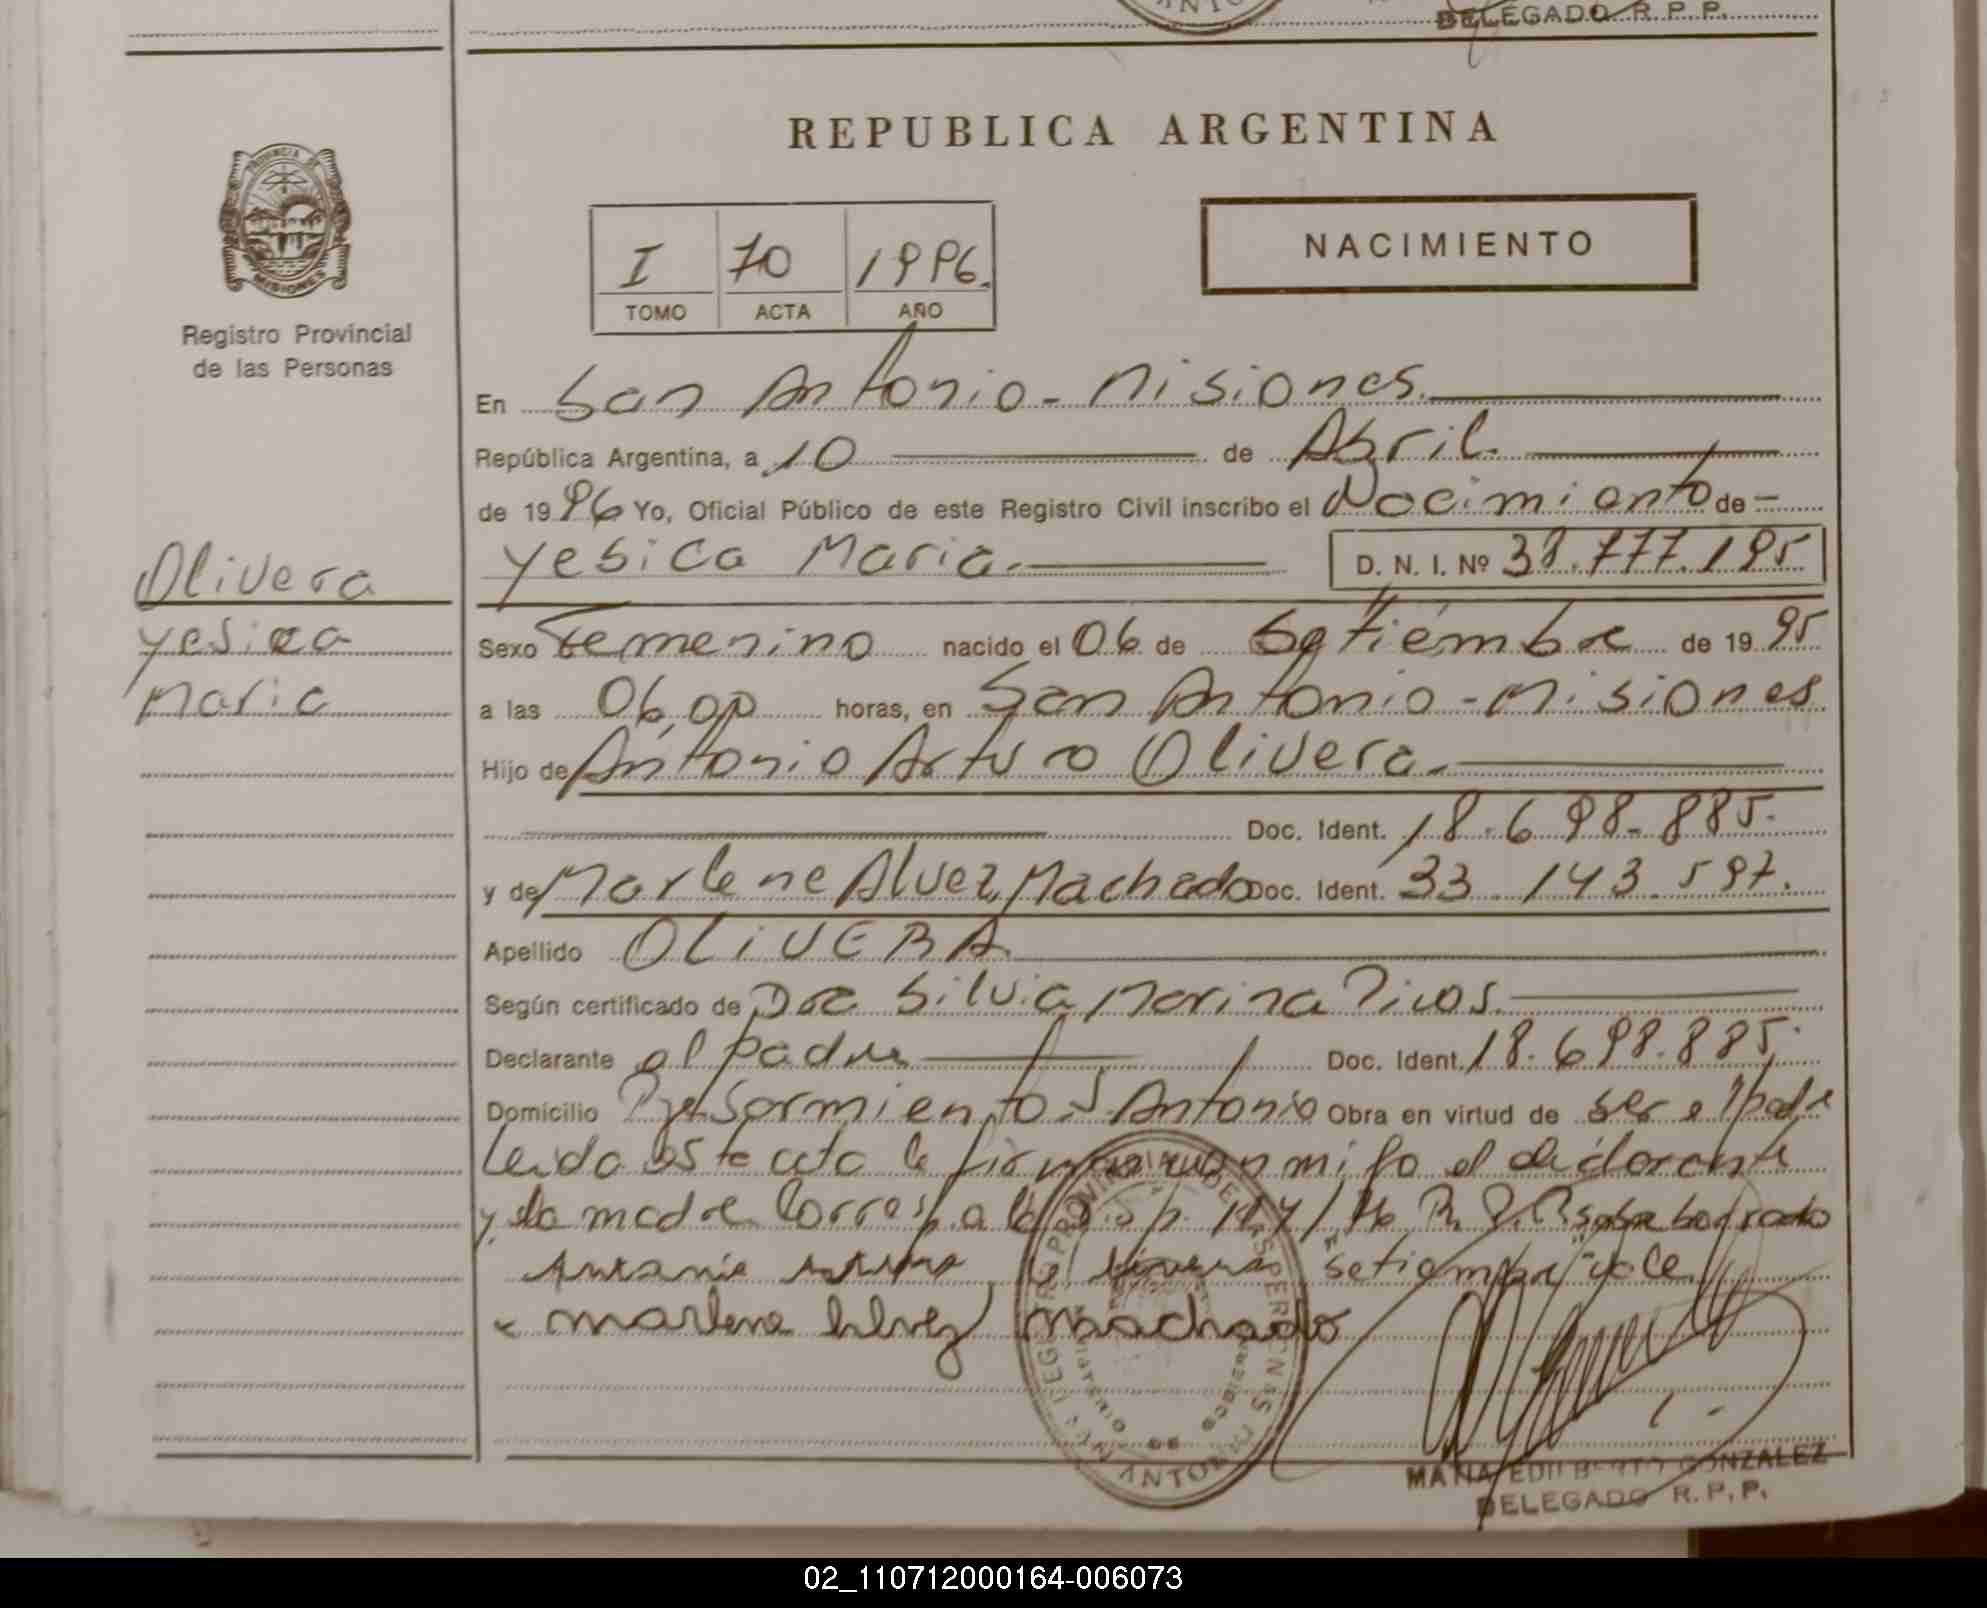 DELEGADO R. P. P.
REPUBLICA ARGENTINA
PROVINCIA DE
MISIONES
Registro Provincial
de las Personas
I 70 1996.
TOMO ACTA AÑO
NACIMIENTO
En San Antonio - Misiones.
República Argentina, a 10 de Abril.
de 1996 Yo, Oficial Público de este Registro Civil inscribo el Nacimiento de
Yesica Maria. D. N. I. Nº 38.777.195
Olivera
Yesica
Maria
Sexo Femenino nacido el 06 de Setiembre de 1995
a las 06,00 horas, en San Antonio - Misiones
Hijo de Antonio Arturo Olivera.
Doc. Ident. 18.698.885.
y de Marlene Alvez Machado Doc. Ident. 33.143.597.
Apellido OLIVERA
Según certificado de Dra Silvia Marina
Declarante el padre Doc. Ident. 18.698.885.
Domicilio Sarmiento S. Antonio Obra en virtud de ser el padre
Leida este acta la firman con migo el declarante
y la madre Corresp. a la Disp. R. P. P. sobre borrado
Antonio Arturo Olivera "setiembre" vale
x Marlene Alvez Machado
GONZALEZ
DELEGADO R. P. P.
02_110712000164-006073